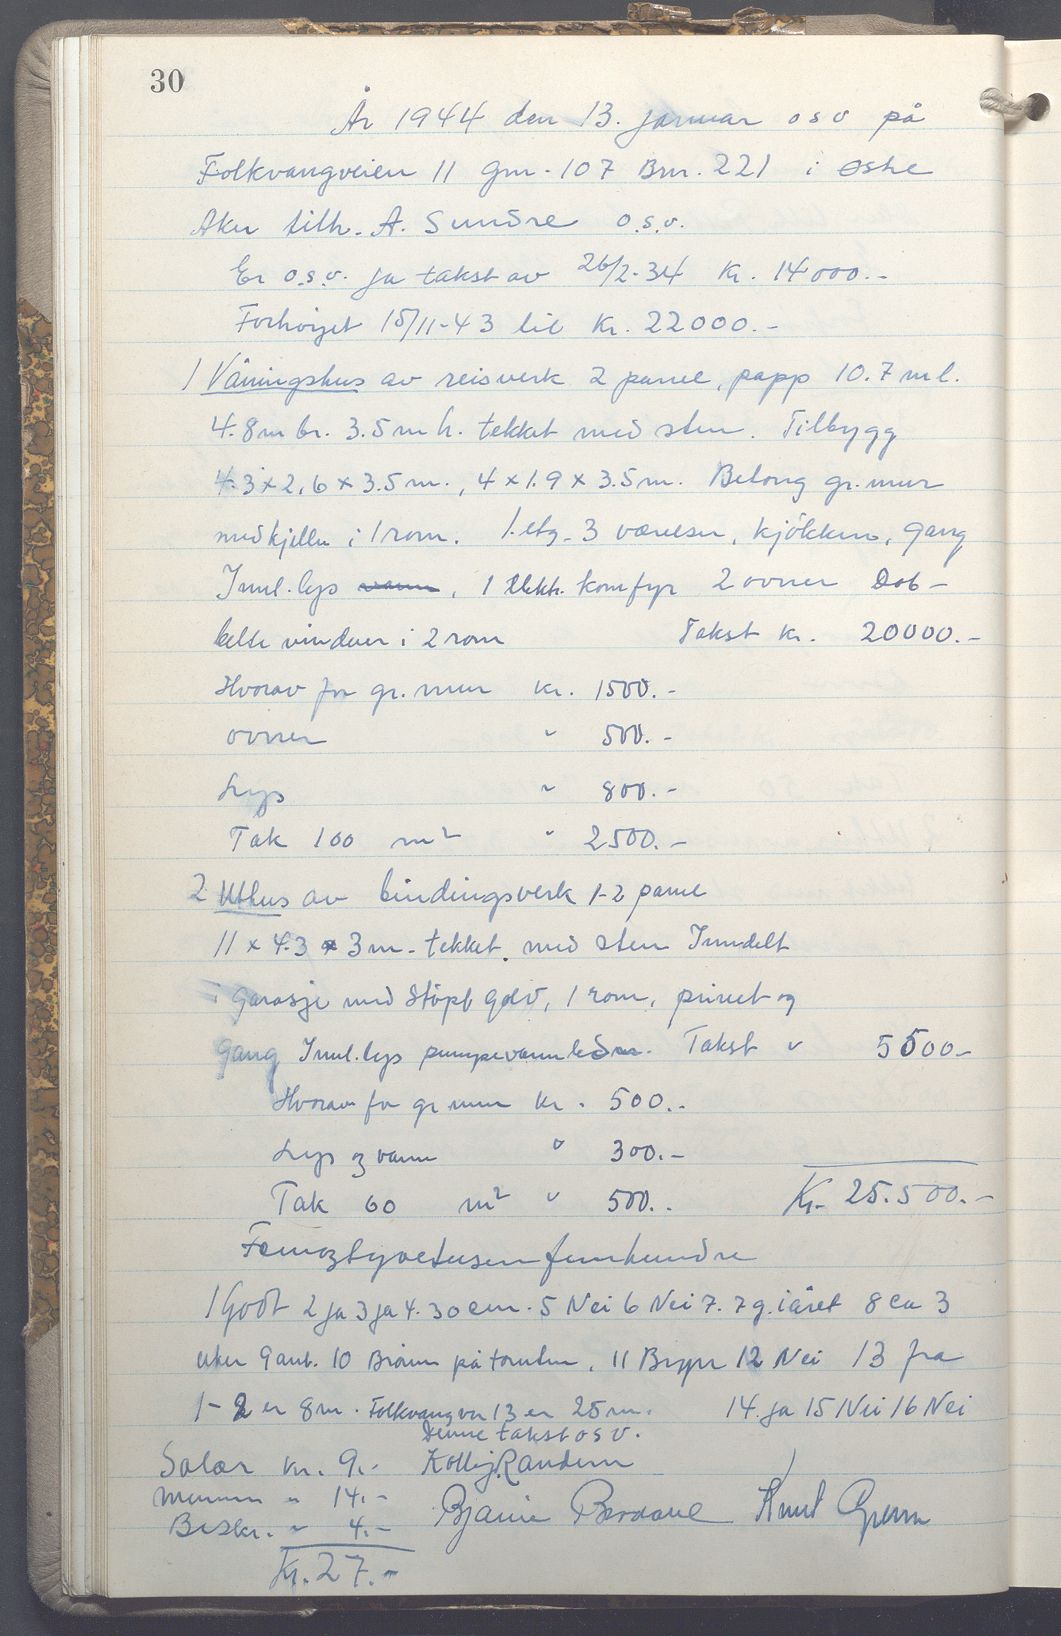 30
År 1944 den 13. januar o s v på
Folkvangveien 11 Gnr. 107 Bnr. 221 i Østre
Aker tilh. A. Sundre o.s.v.
Er o.s.v. Ja takst av 26/2-34 Kr. 14000.-
Forhöyet 15/11-43 til Kr. 22000.-
1 Våningshus av reisverk 2 panel, papp 10.7 m l.
4.8 m br. 3.5 m h. tekket med sten. Tilbygg
4.3 x 2.6 x 3.5 m., 4 x 1.9 x 3.5 m. Betong gr. mur
med kjeller i 1 rom. 1. etg. 3 værelser, kjökken, gang
Innl. lys vann, 1 Elektr. komfyr 2 ovner Dob-
belte vinduer i 2 rom Takst kr. 20000.-
Hvorav for gr. mur kr. 1500.-
ovner " 500.-
Lys " 800.-
Tak 100 m² " 2500.-
2 Uthus av bindingsverk 1-2 panel
11 x 4.3 x 3 m. tekket med sten Inndelt
i garasje med Stöpt golv, 1 rom, privet og
Gang Innl. lys pumpevann ledn. Takst " 5500-
Hvorav for gr mur kr. 500.-
Lys og vann " 300.-
Tak 60 m² " 500.. Kr. 25.500.-
Femogtyvetusenfemhundre
1 Godt 2 ja 3 ja 4. 30 cm. 5 Nei 6 Nei 7. 7 g. i året 8 ca 3
uker 9 ant. 10 Brönn på tomten, 11 Bryn 12 Nei 13 fra
1-2 er 8 m. Folkvangvn 13 er 25 m. 14. ja 15 Nei 16 Nei
Denne takst o s v.
Salær kr. 9.- Kolbj. Randem
" 14.-
Beskr. " 4.- Bjarne Knut
Kr. 27.-